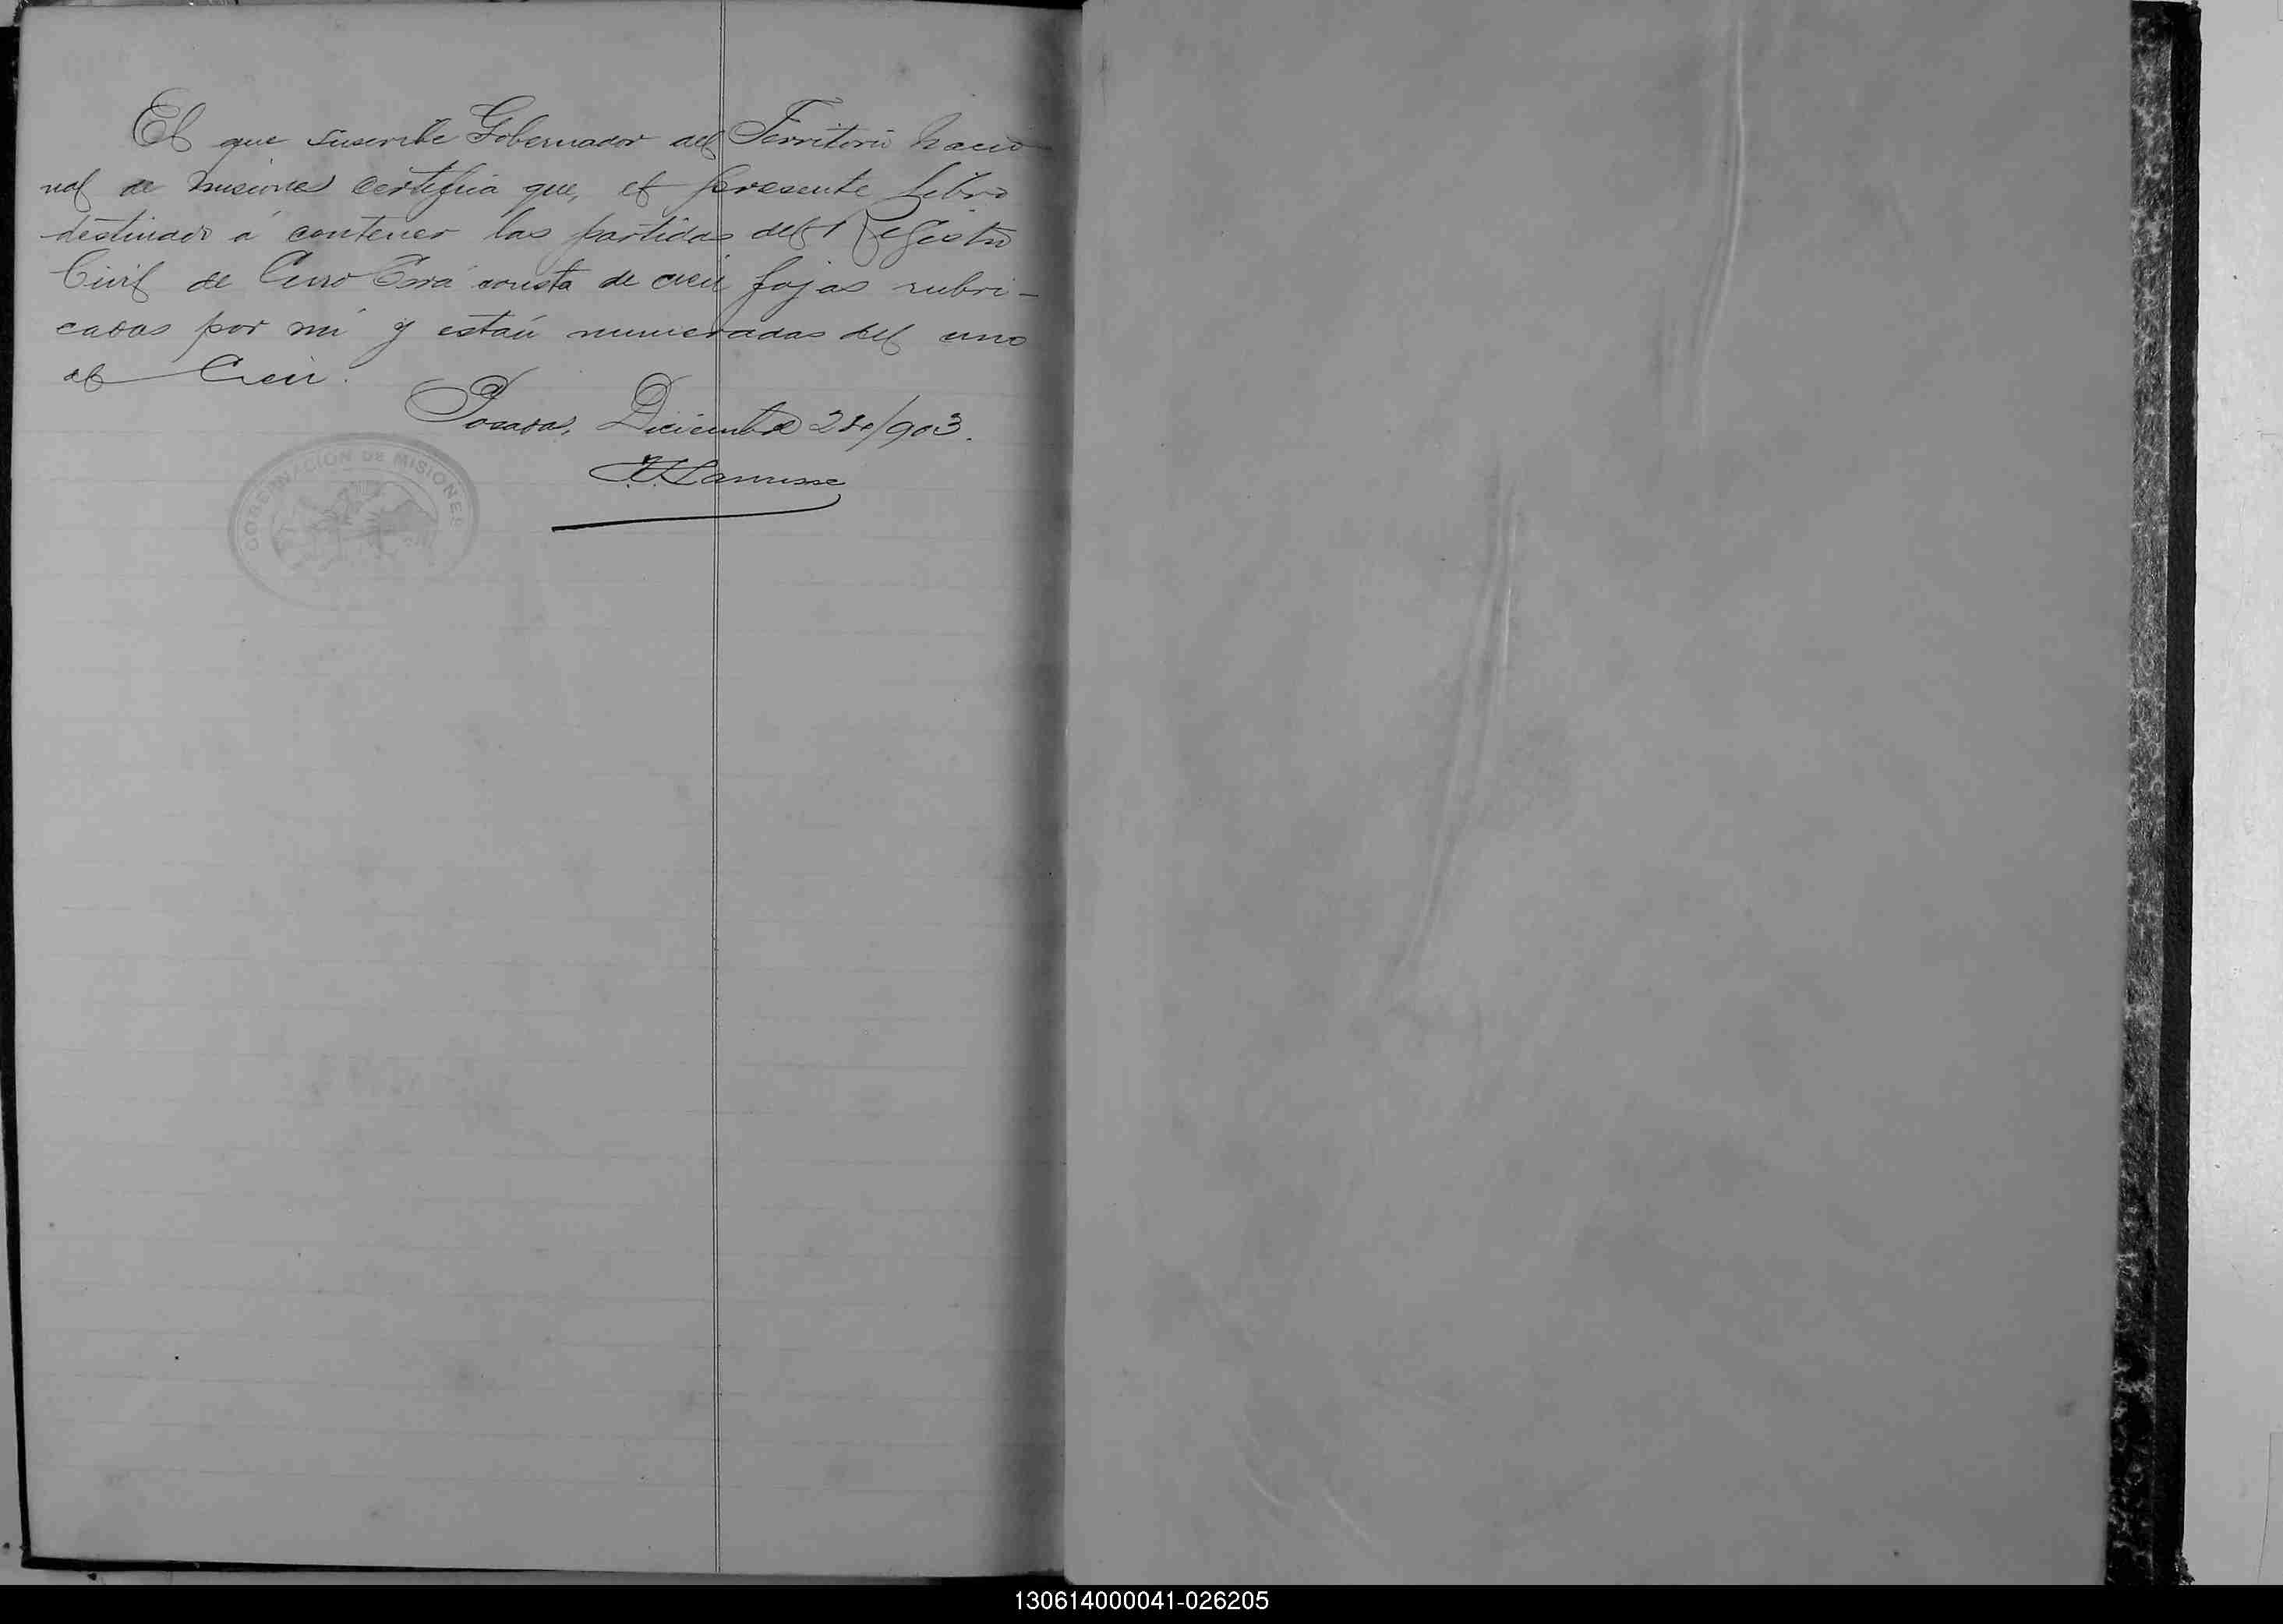 El que suscribe Gobernador del Territorio Nacio
nal de Misiones certifica que, el presente libro
destinado á contener las partidas del Registro
Civil de Cerro Corá consta de cien fojas rubri-
cadas por mi y están numeradas del uno
al Cien.
Posadas, Diciembre 28/903.
Lanusse
GOBERNACION DE MISIONES
130614000041-026205